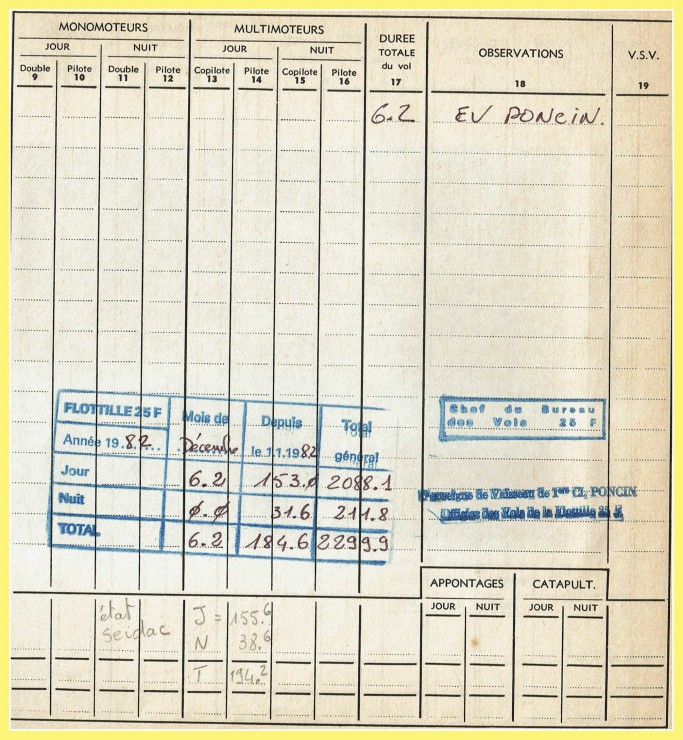 MONOMOTEURS MULTIMOTEURS DUREE TOTALE du vol OBSERVATIONS V.S.V.
JOUR NUIT JOUR NUIT
Double Pilote Double Pilote Copilote Pilote Copilote Pilote
9 10 11 12 13 14 15 16 17 18 19
6.2 EV PONCIN.
FLOTTILLE 25 F Mois de Depuis Total
Année 1982 Décembre le 1.1.1982 général
Jour 6.2 153.0 2088.1
Nuit 0.0 31.6 211.8
TOTAL 6.2 184.6 2299.9
Chef du Bureau
des Vols 25 F
de Vaisseau de 1re Cl. PONCIN
Officier des Vols de la Flottille 25 F
APPONTAGES CATAPULT.
JOUR NUIT JOUR NUIT
état J = 155.6
seidac N 38.6
T 194.2